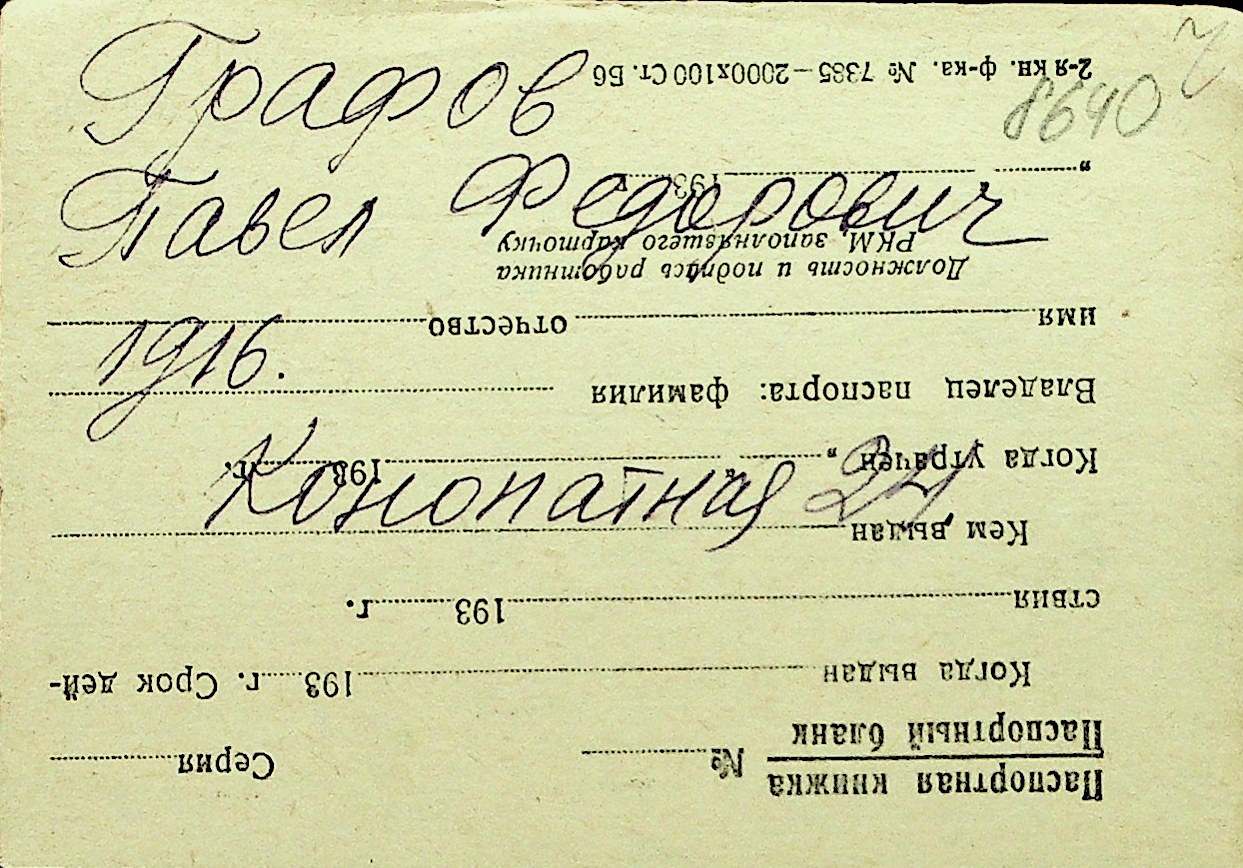 Графов
Павел Федорович
1916.
Конопатная 24
8640
Паспортная книжка
Паспортный бланк
№ Серия
Когда выдан 193 г. Срок дей-
ствия 193 г.
Кем выдан
Когда утрачен „ “ 193 г.
Владелец паспорта: фамилия
имя отчество
Должность и подпись работника
РКМ, заполнявшего карточку
„ 193
2-я кн. ф-ка. № 7385—2000х100 Ст. Б6